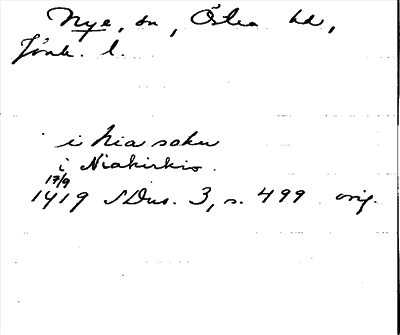 Nye, sn, Östra hd,
Jönk. l.
i Nia sokn
i Niakirkio.
17/9
1419 SDns. 3, s. 499 orig.